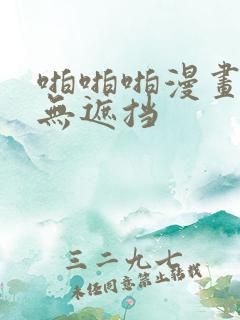 啪啪啪漫畫
無遮挡
三二九七
未经同意禁止转载